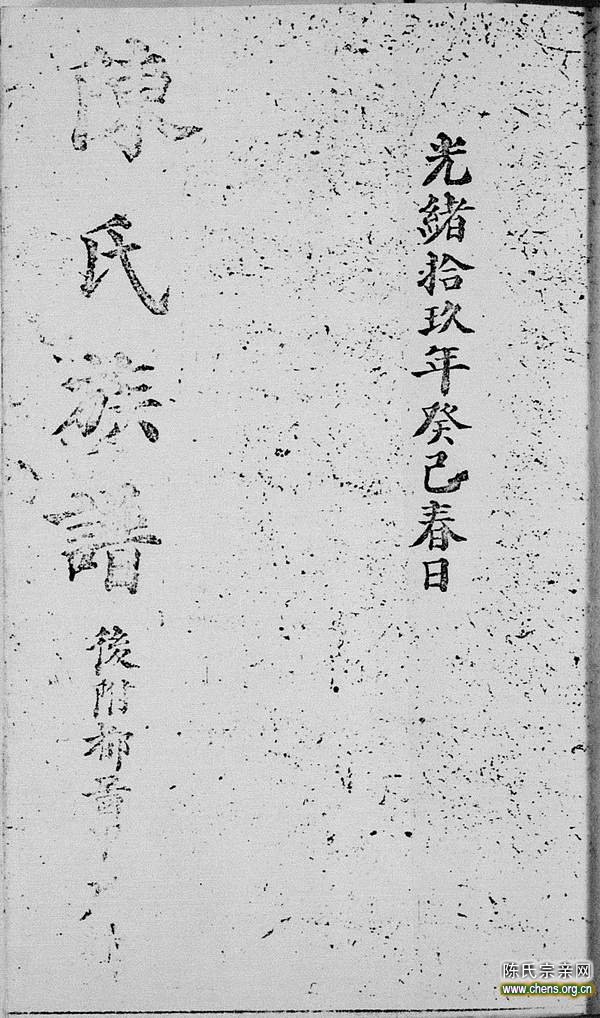 光緒拾玖年癸巳春日
陳氏族譜
後附鄉
陈氏宗亲网
www.chens.org.cn